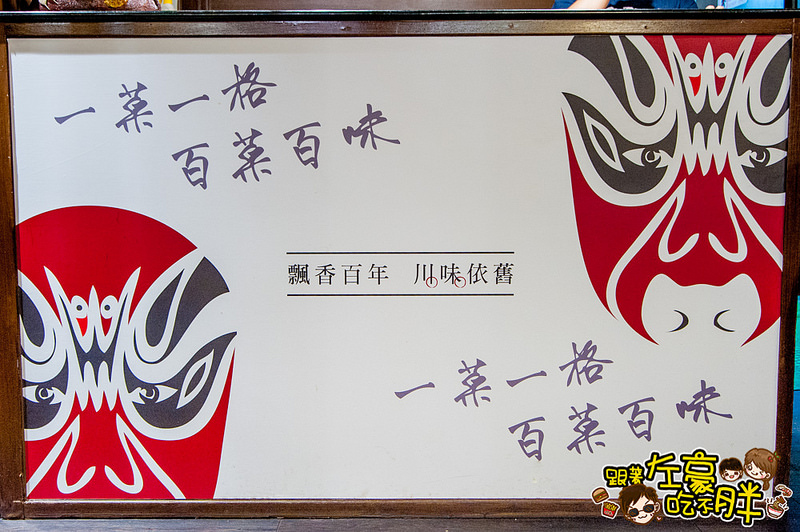 一菜一格
百菜百味
飄香百年 川味依舊
一菜一格
百菜百味
跟著左豪吃不胖